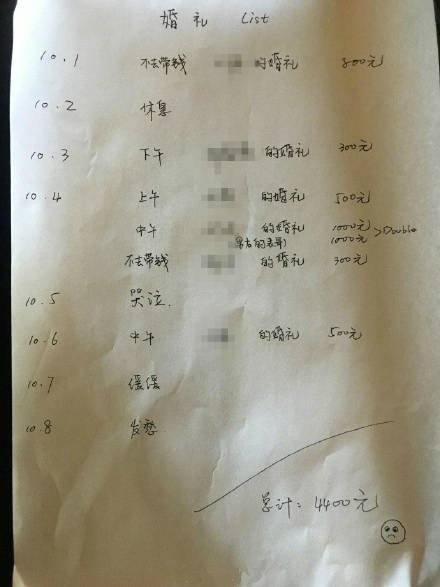 婚礼 List
10.1 不去带钱 的婚礼 800元
10.2 休息
10.3 下午 的婚礼 300元
10.4 上午 的婚礼 500元
中午 的婚礼 1000元
的表哥) 1000元 >Double
不去带钱 的婚礼 300元
10.5 哭泣.
10.6 中午 的婚礼 500元
10.7 缓缓
10.8 发愁
总计: 4400元